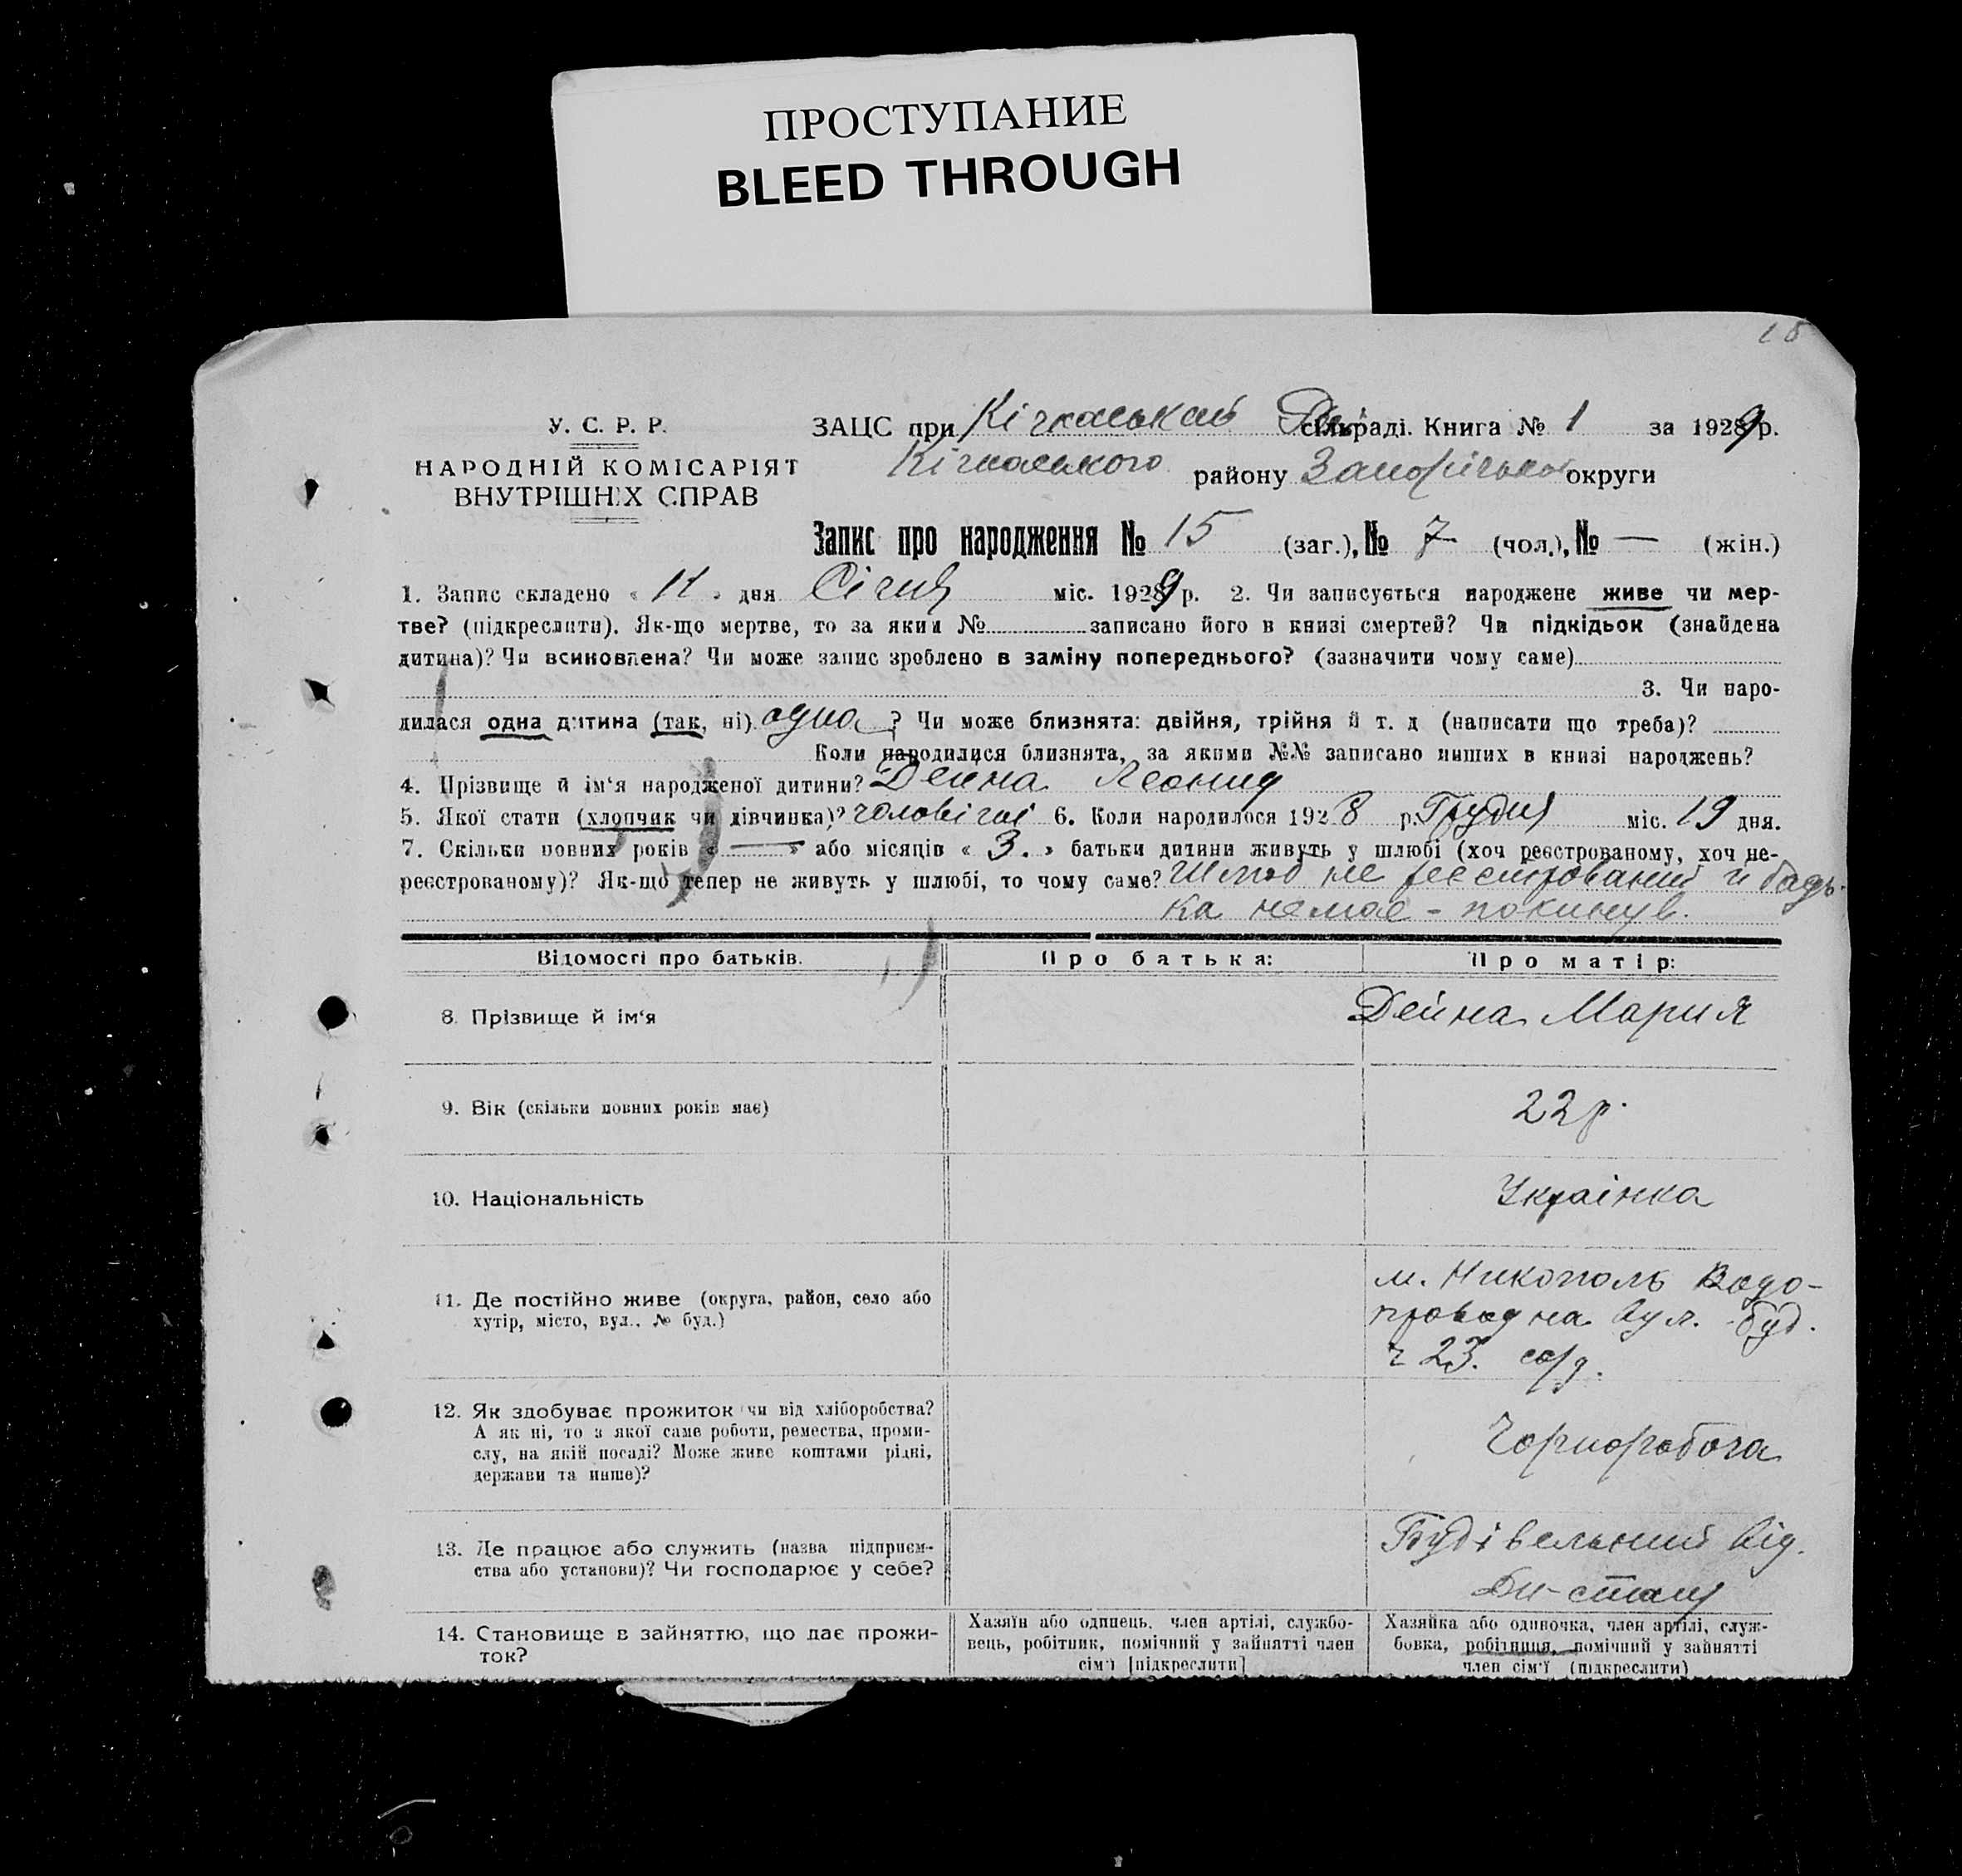 ПРОСТУПАНИЕ
BLEED THROUGH
18
У. С. Р. Р.
НАРОДНІЙ КОМІСАРІЯТ
ВНУТРІШНІХ СПРАВ
ЗАЦС при Кічкаський сільраді. Книга № 1 за 1929 р.
Кічкаського району округи
Запис про народження № 15 (заг.), № 7 (чол.), № — (жін.)
1. Запис складено « 11 » дня Січня міс. 1929 р. 2. Чи записується народжене живе чи мер-
тве? (підкреслити). Як-що мертве, то за яким № записано його в книзі смертей? Чи підкідьок (знайдена
дитина)? Чи всиновлена? Чи може запис зроблено в заміну попереднього? (зазначити чому саме)
3. Чи наро-
дилася одна дитина (так, ні) одна ? Чи може близнята: двійня, трійня й т. д (написати що треба)?
Коли народилися близнята, за якими №№ записано инших в книзі народжень?
4. Прізвище й ім‘я народженої дитини? Дейна Леонид
5. Якої стати (хлопчик чи дівчинка)? чоловічої 6. Коли народилося 1928 р. Грудня міс. 19 дня.
7. Скільки повних років « — » або місяців « 3. » батьки дитини живуть у шлюбі (хоч реєстрованому, хоч не-
реєстрованому)? Як-що тепер не живуть у шлюбі, то чому саме? Шлюб не реєстрований й бать-
ка немає - покинув.
Відомості про батьків. Про батька: Про матір:
8. Прізвище й ім‘я Дейна Мария
9. Вік (скільки повних років має) 22 р.
10. Національність Українка
11. Де постійно живе (округа, район, село або
хутір, місто, вул., № буд.)
м. Никополь Водо-
проводна вул. буд.
ч 23.
12. Як здобуває прожиток (чи від хліборобства?
А як ні, то з якої саме роботи, ремества, проми-
слу, на якій посаді? Може живе коштами рідні,
держави та инше)?
Чорноробоча
13. Де працює або служить (назва підприєм-
ства або установи)? Чи господарює у себе?
Будівельний від.
14. Становище в зайняттю, що дає прожи-
ток?
Хазяїн або одинець, член артілі, службо-
вець, робітник, помічний у зайнятті член
сім‘ї [підкреслити]
Хазяйка або одиночка, член артілі, служ-
бовка, робітниця, помічний у зайнятті
член сім‘ї (підкреслити)